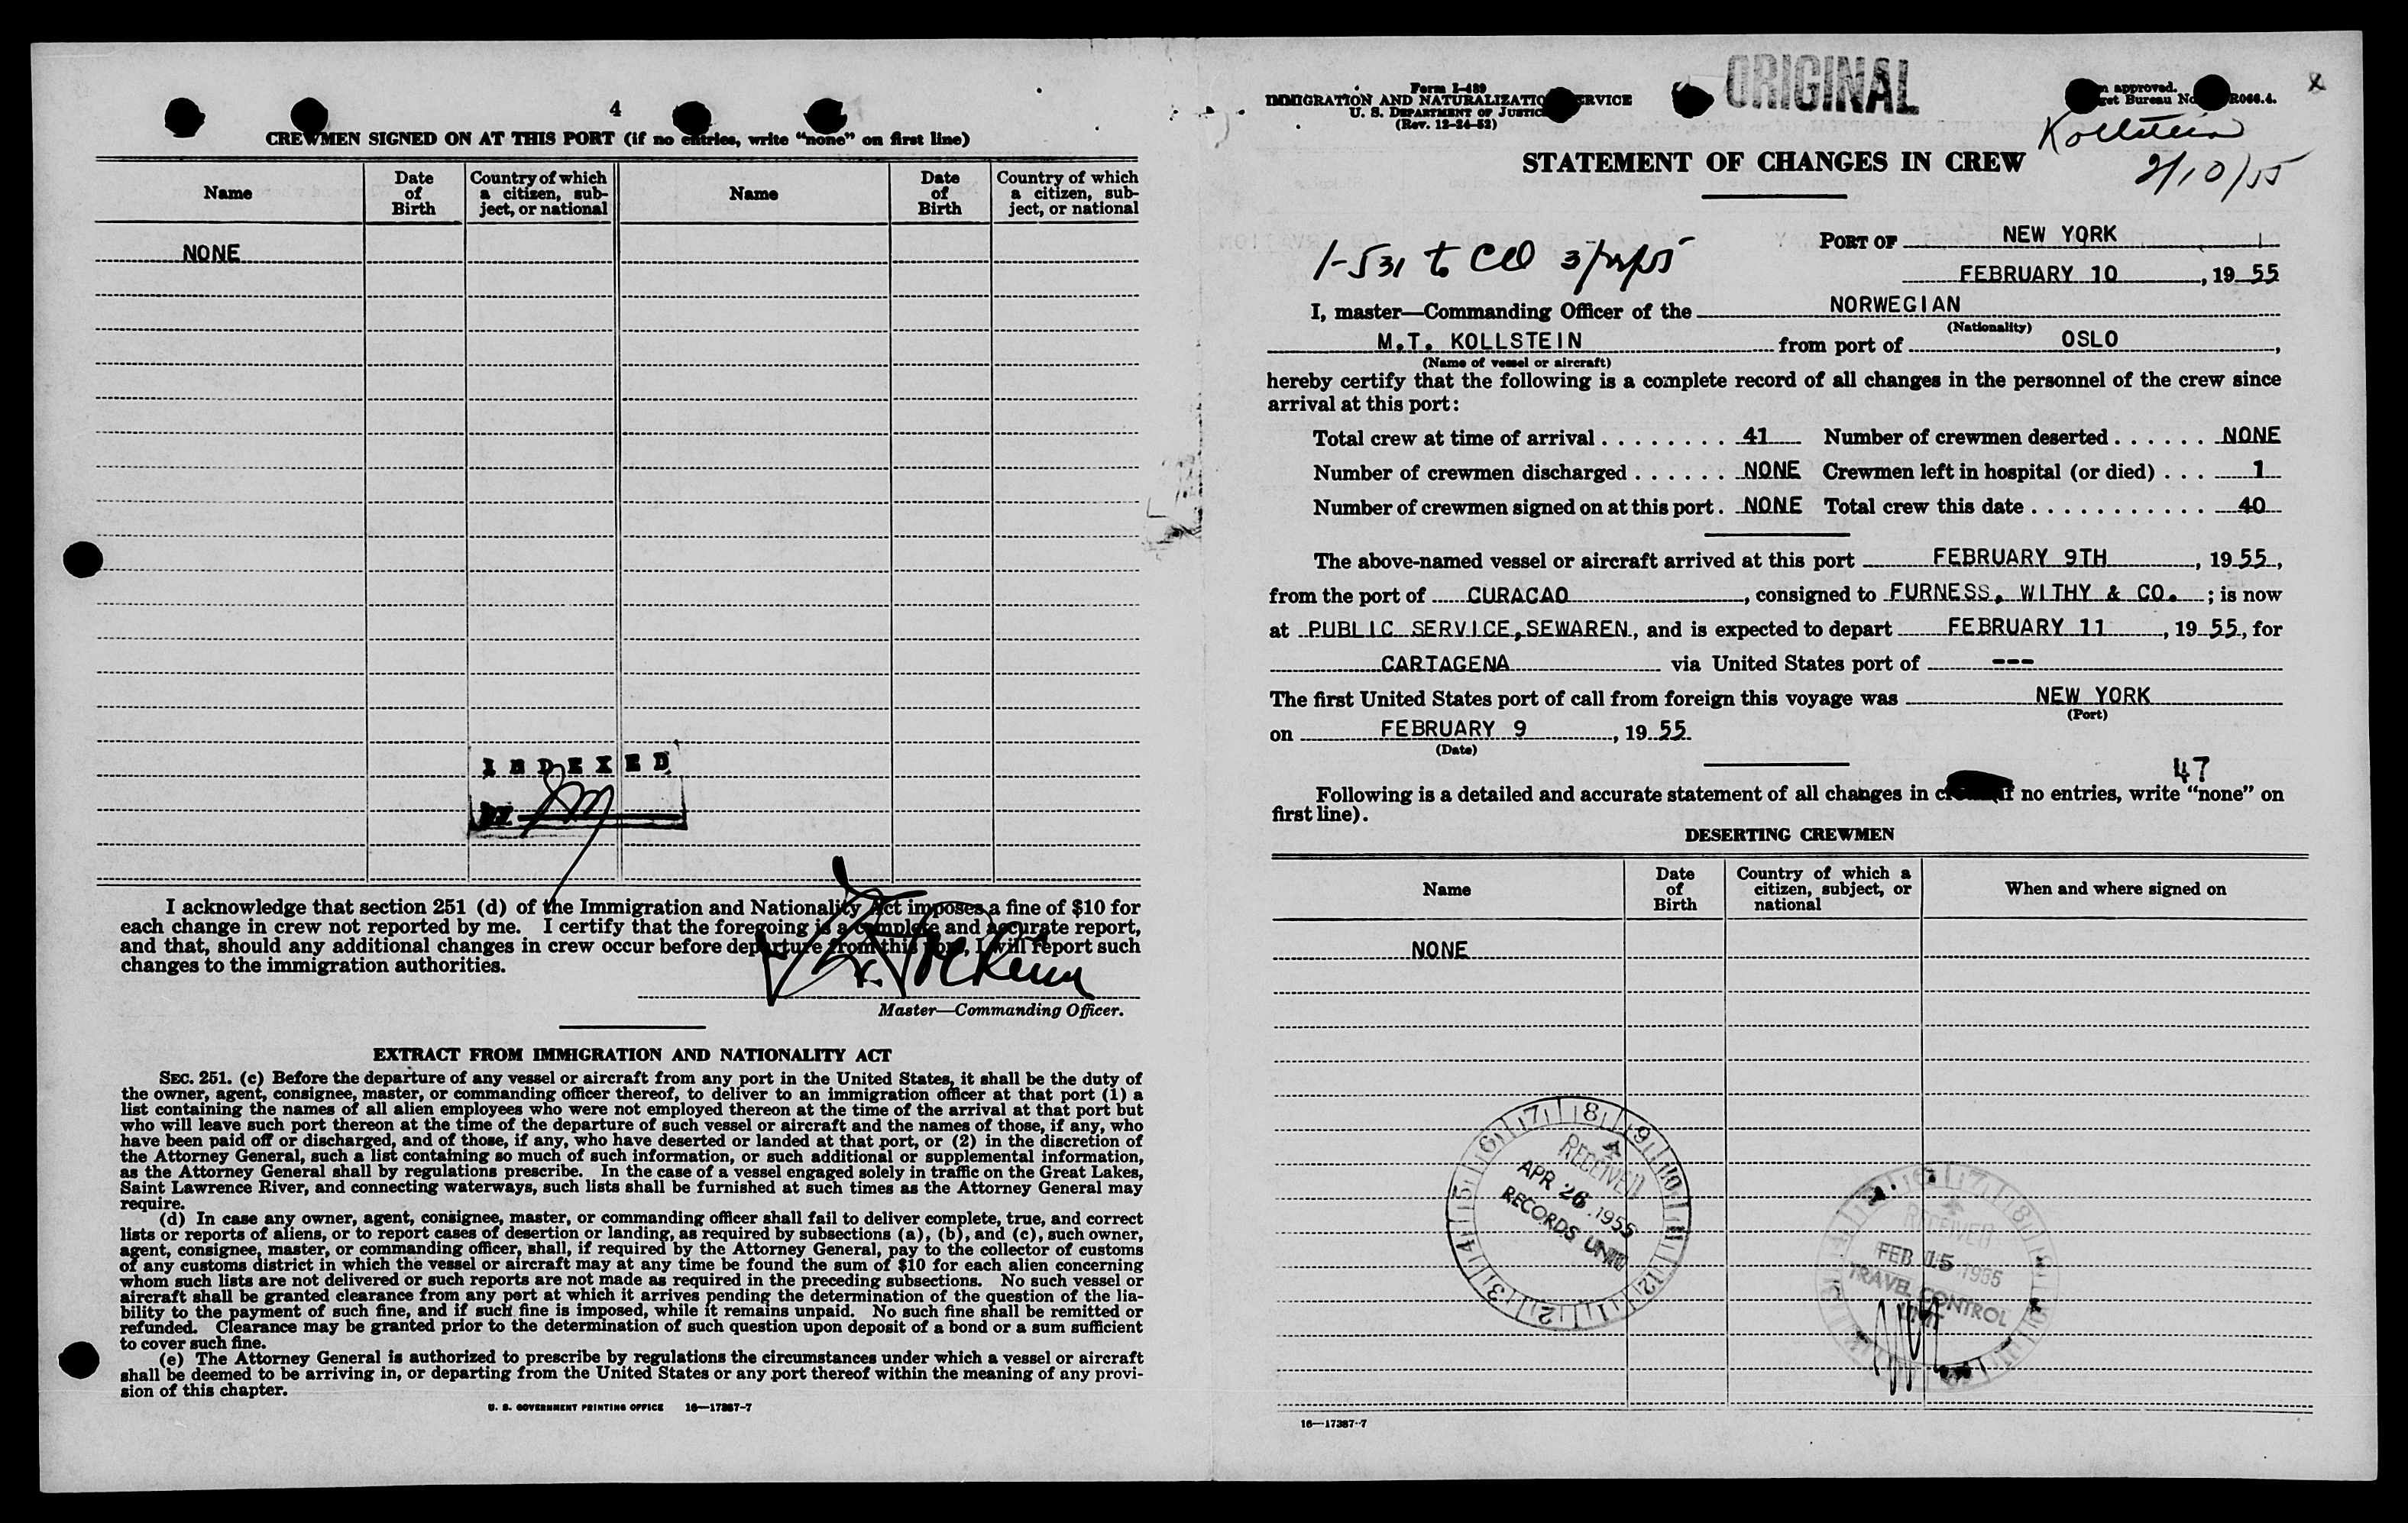 4
CREWMEN SIGNED ON AT THIS PORT (if no entries, write "none" on first line)
Name
Date of Birth
Country of which a citizen, subject, or national
Name
Date of Birth
Country of which a citizen, subject, or national
NONE
INDEXED
I acknowledge that section 251 (d) of the Immigration and Nationality Act imposes a fine of $10 for
each change in crew not reported by me. I certify that the foregoing is a complete and accurate report,
and that, should any additional changes in crew occur before departure from this port, I will report such
changes to the immigration authorities.
Master—Commanding Officer.
EXTRACT FROM IMMIGRATION AND NATIONALITY ACT
SEC. 251. (c) Before the departure of any vessel or aircraft from any port in the United States, it shall be the duty of
the owner, agent, consignee, master, or commanding officer thereof, to deliver to an immigration officer at that port (1) a
list containing the names of all alien employees who were not employed thereon at the time of the arrival at that port but
who will leave such port thereon at the time of the departure of such vessel or aircraft and the names of those, if any, who
have been paid off or discharged, and of those, if any, who have deserted or landed at that port, or (2) in the discretion of
the Attorney General, such a list containing so much of such information, or such additional or supplemental information,
as the Attorney General shall by regulations prescribe. In the case of a vessel engaged solely in traffic on the Great Lakes,
Saint Lawrence River, and connecting waterways, such lists shall be furnished at such times as the Attorney General may
require.
(d) In case any owner, agent, consignee, master, or commanding officer shall fail to deliver complete, true, and correct
lists or reports of aliens, or to report cases of desertion or landing, as required by subsections (a), (b), and (c), such owner,
agent, consignee, master, or commanding officer, shall, if required by the Attorney General, pay to the collector of customs
of any customs district in which the vessel or aircraft may at any time be found the sum of $10 for each alien concerning
whom such lists are not delivered or such reports are not made as required in the preceding subsections. No such vessel or
aircraft shall be granted clearance from any port at which it arrives pending the determination of the question of the lia-
bility to the payment of such fine, and if such fine is imposed, while it remains unpaid. No such fine shall be remitted or
refunded. Clearance may be granted prior to the determination of such question upon deposit of a bond or a sum sufficient
to cover such fine.
(e) The Attorney General is authorized to prescribe by regulations the circumstances under which a vessel or aircraft
shall be deemed to be arriving in, or departing from the United States or any port thereof within the meaning of any provi-
sion of this chapter.
U. S. GOVERNMENT PRINTING OFFICE 16—17387-7
Form I-489
IMMIGRATION AND NATURALIZATION SERVICE
U. S. DEPARTMENT OF JUSTICE
(Rev. 12-24-52)
ORIGINAL
approved.
Bureau No. R066.4.
X
Kollstein
2/10/55
STATEMENT OF CHANGES IN CREW
1-531 to
PORT OF NEW YORK
FEBRUARY 10, 1955
I, master—Commanding Officer of the NORWEGIAN
(Nationality)
M.T. KOLLSTEIN from port of OSLO,
(Name of vessel or aircraft)
hereby certify that the following is a complete record of all changes in the personnel of the crew since
arrival at this port:
Total crew at time of arrival . . . . . . . . 41 Number of crewmen deserted . . . . . . NONE
Number of crewmen discharged . . . . . . NONE Crewmen left in hospital (or died) . . . 1
Number of crewmen signed on at this port . NONE Total crew this date . . . . . . . . . . . 40
The above-named vessel or aircraft arrived at this port FEBRUARY 9TH, 1955,
from the port of CURACAO, consigned to FURNESS, WITHY & CO. ; is now
at PUBLIC SERVICE, SEWAREN, and is expected to depart FEBRUARY 11, 1955, for
CARTAGENA via United States port of ---
The first United States port of call from foreign this voyage was NEW YORK
(Port)
on FEBRUARY 9, 1955
(Date)
47
Following is a detailed and accurate statement of all changes in no entries, write "none" on
first line).
DESERTING CREWMEN
Name
Date of Birth
Country of which a citizen, subject, or national
When and where signed on
NONE
7 8 9 10 11 12 1 2 3 4 5 6
RECEIVED
APR 26 1955
RECORDS UNIT
RECEIVED
FEB 15 1955
TRAVEL CONTROL
UNIT
16—17387-7